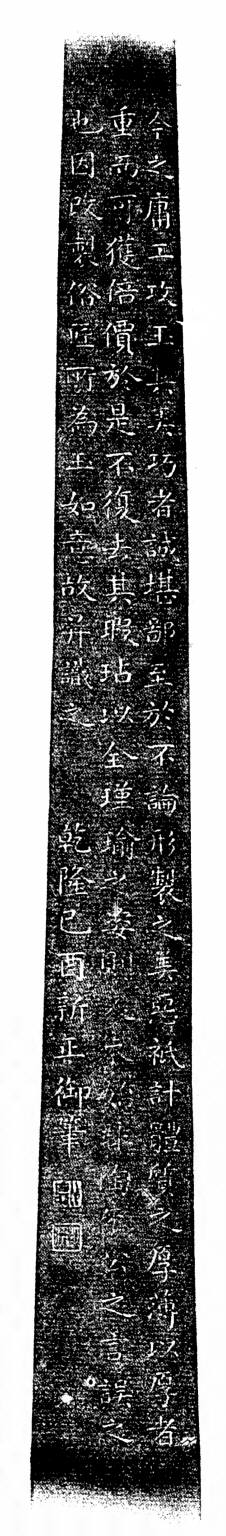 今之庸工攻玉去其巧者誠堪鄙至於不論形製之美惡祇計體質之厚薄以厚者
重而可獲倍價於是不復去其瑕玷以全瑾瑜之姿則又未始非陶朱公之言誤之
也因改製俗匠所為玉如意故并識之 乾隆己酉新正御筆